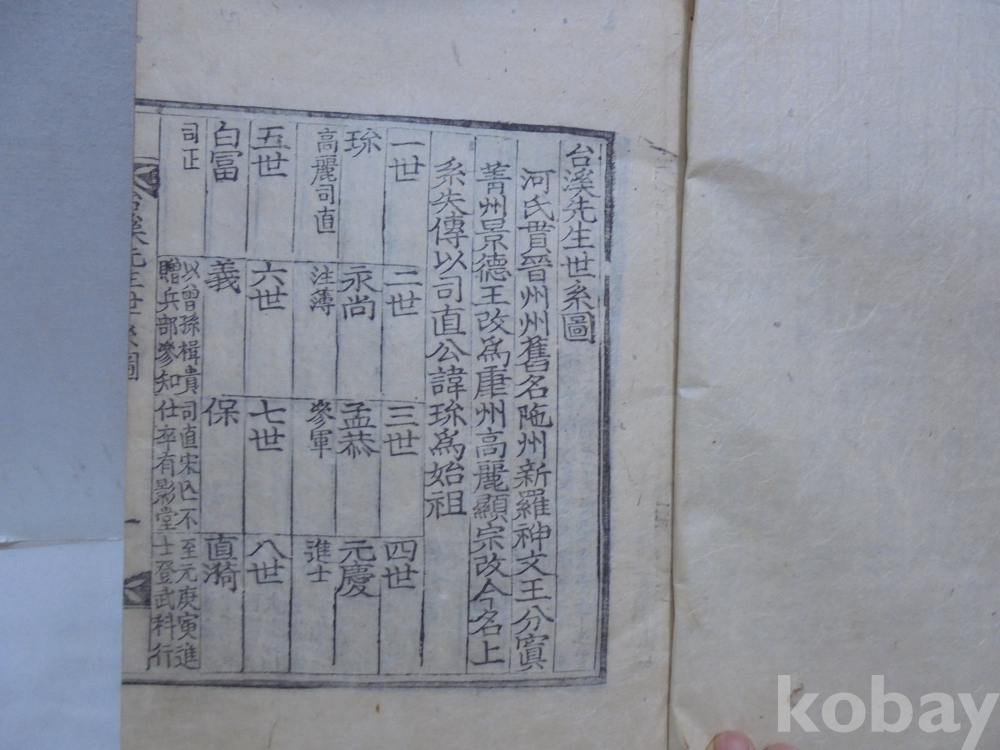 台溪先生世系圖
河氏貫晉州州舊名陁州新羅神文王分寘
菁州景德王改爲康州高麗顯宗改今名上
系失傳以司直公諱珎爲始祖
一世 二世 三世 四世
珎 永尚 孟恭 元慶
高麗司直 注薄 參軍 進士
五世 六世 七世 八世
自富 義 保 直漪
司正 以曾孫楫貴 司直宋亡不 至元庚寅進
贈兵部參知 仕卒有影堂 士登武科行
台溪先生世系圖 一
kobay